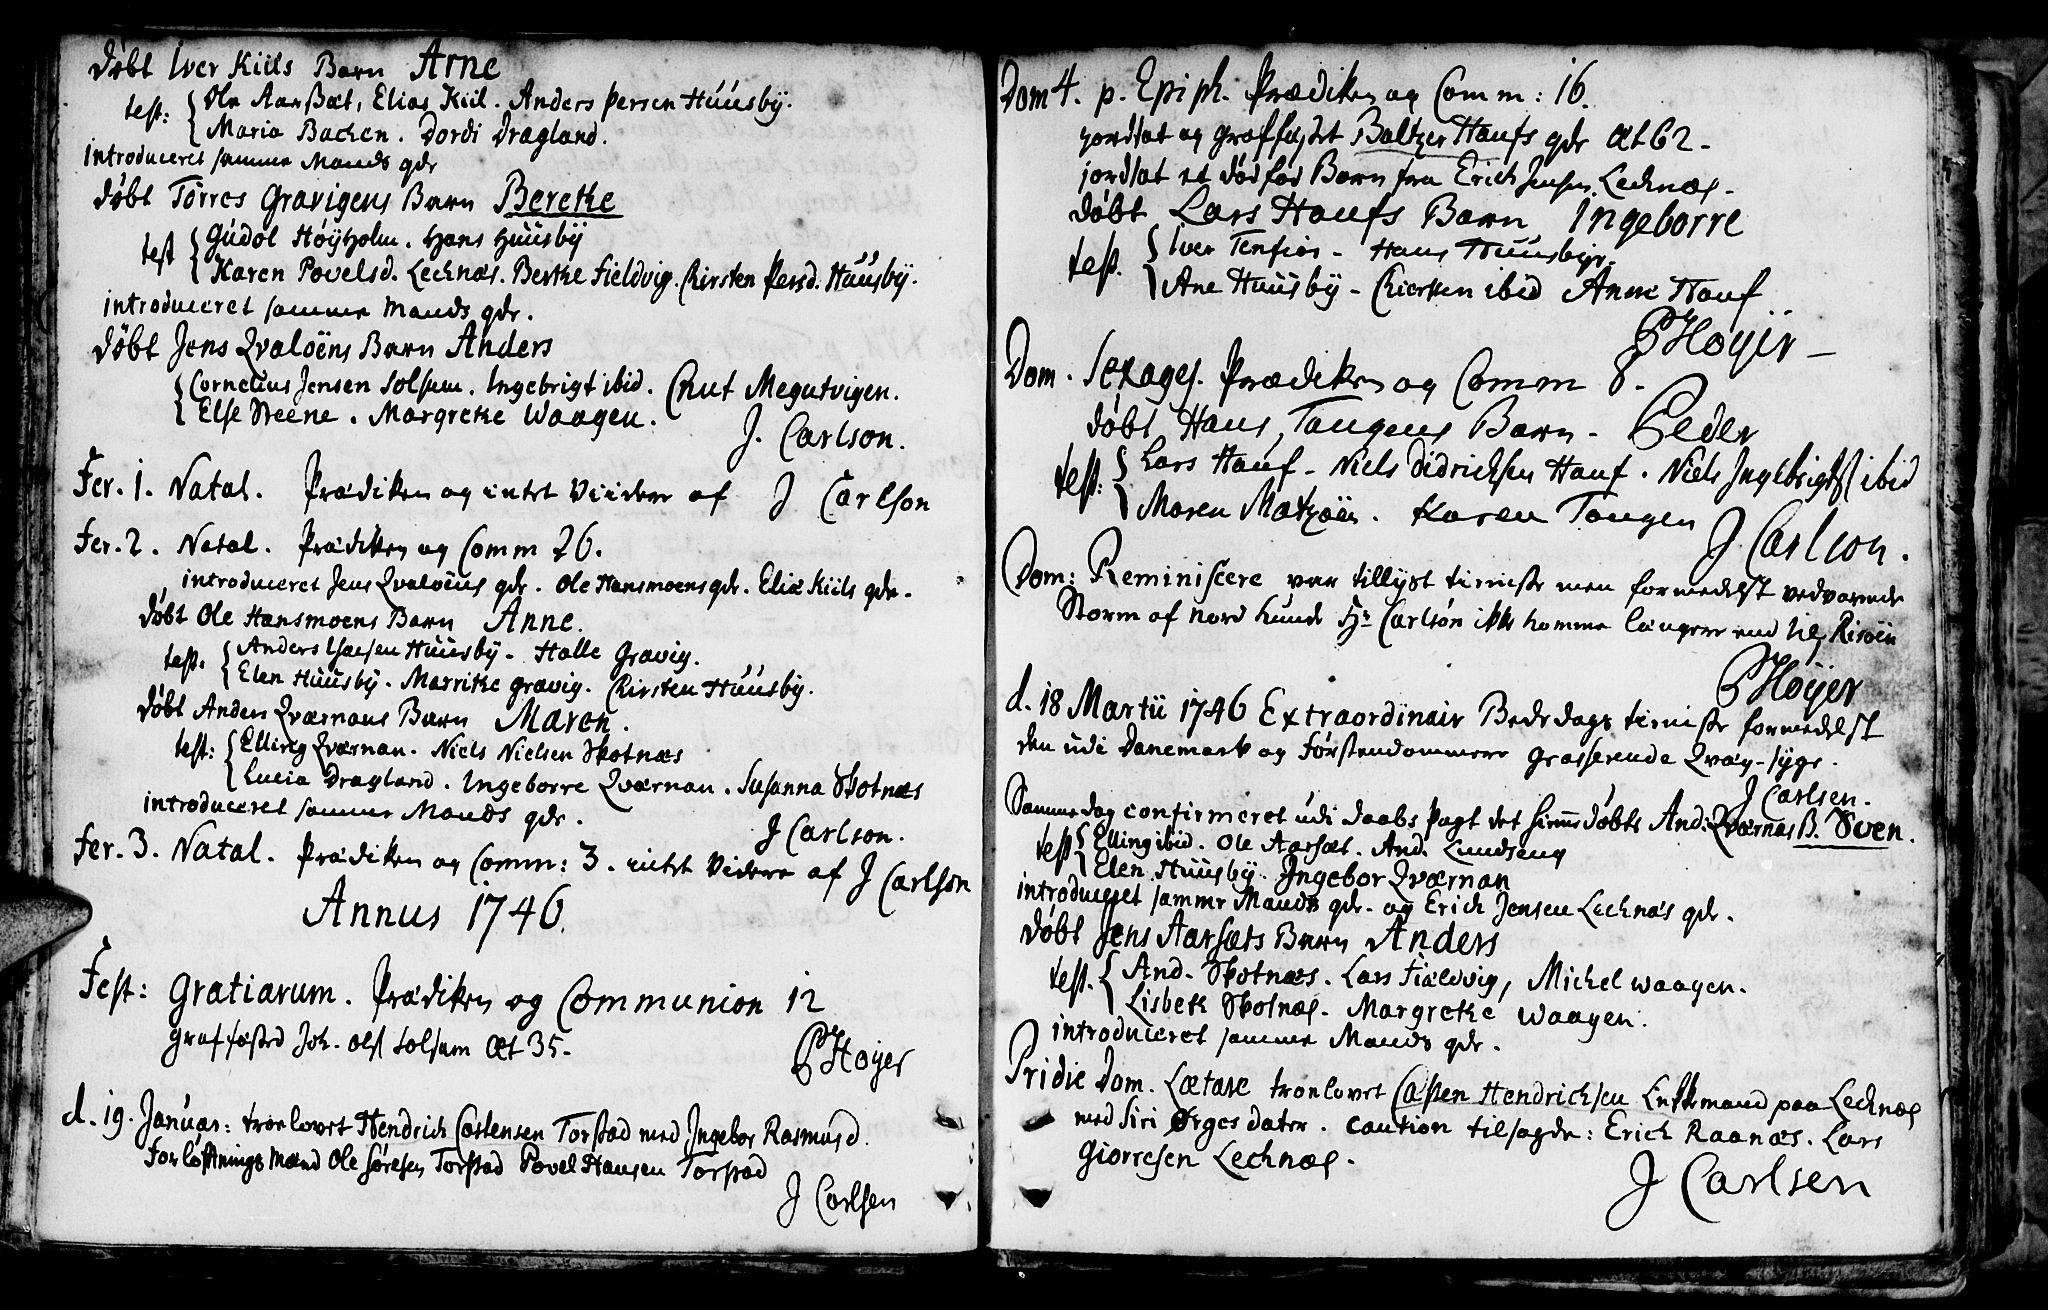 døbt Iver Kiils Barn Arne
test: Ole Aarsæt, Elias Kiil. Anders Persen Huusbÿ.
Maria Bachen. Dordi Dragland.
introduceret samme Mands qde
døbt Törres Gravigens Barn Beretke
test Gudol Höÿholm. Hans Huusbÿ
Karen Povelsd. Lecknæs. Beretke Fieldvig. Kirsten Persd. Huusbÿ.
introduceret samme Mands qde.
døbt Jens Qvalöens Barn Anders
Cornelius Jensen Solsem. Ingebrigt ibid. Cnut Megutvigen.
Else Steene. Margretke Waagen.
J. Carlson.
Fer. 1. Natal. Prædiken og intet Viidere af J Carlson
Fer. 2. Natal. Prædiken og Comm 26.
introduceret Jens Qvalöens qde. Ole Hansmoens qde. Eliæ Kiils qde.
døbt Ole Hansmoens Barn Anne.
test. Anders Huusbÿ. Halle Gravig.
Elen Huusbÿ. Marritke Gravig. Kirsten Huusbÿ.
døbt Anders Qværnans Barn Maren.
test: Elling Qværnan. Niels Nielsen Skotnæs
Lucia Dragland. Ingeborre Qværnan. Susanna Skotnæs
introduceret samme Mands qde.
J Carlson.
Fer. 3. Natal. Prædiken og Comm: 3. intet Videre af J Carlson
Annus 1746.
Fest: Gratiarum. Prædiken og Communion 12
Graffæsted Joh. Ols Solsem Æt 35.
P Hoÿer
d. 19. Januar: troelovet Hendrich Castensen Torstad med Ingebor Rasmusd.
Forløftnings Mænd Ole Sörensen Torstad Povel Hansen Torstad
J Carlsen
Dom 4. p. Epiph. Prædiken og Comm: 16.
jordsat og graffæstet Baltzer Haufs qde Æt 62.
jordsat et dödföd Barn fra Erich Jensen Lecknæs.
døbt Lars Haufs Barn Ingeborre
test. Iver Tenfior. Hans Huusbÿe.
Ane Huusbÿ. Kiersten ibid Anne Hauf
P Hoyer
Dom. Sexages. Prædiken og Comm 8.
døbt Hans Tangens Barn. Peder
test: Lars Hauf. Niels Didrichsen Hauf. Niels Ingebrigts ibid
Maren Matzöen. Karen Tangen
J Carlson.
Dom: Reminiscere var tillÿst tieniste men formedelst vedvarende
Storm af Nord kunde Hr Carlsön ikke komme længere end til Risöen
P Hoÿer
d. 18 Martii 1746 Extraordinair Bededags tieniste formedelst
den udi Danemark og Förstendommene grasserende Qvæg-sÿge.
J Carlsen.
Samme dag confirmeret udi daabs Pagt det hiemmedøbte And: Qværnas B. Sven.
test Elling ibid. Ole Aarsæt. And. Lundseng
Elen Huusbÿ. Ingebor Qværnan
introduceret samme Mands qde. og Erich Jensen Lecknæs qde.
døbt Jens Aarsæts Barn Anders
test. And. Skotnæs. Lars Fiældvig, Michel Waagen.
Lisbetk Skotnæs. Margretke Waagen.
introduceret samme Mands qde.
Pridie Dom. Lætare troelovet Casten Hendrichsen Enkemand paa Lecknæs
med Siri Örgesdater. Caution tilsagde: Erich Raanæs. Lars
Giorresen Lecknæs.
J Carlsen